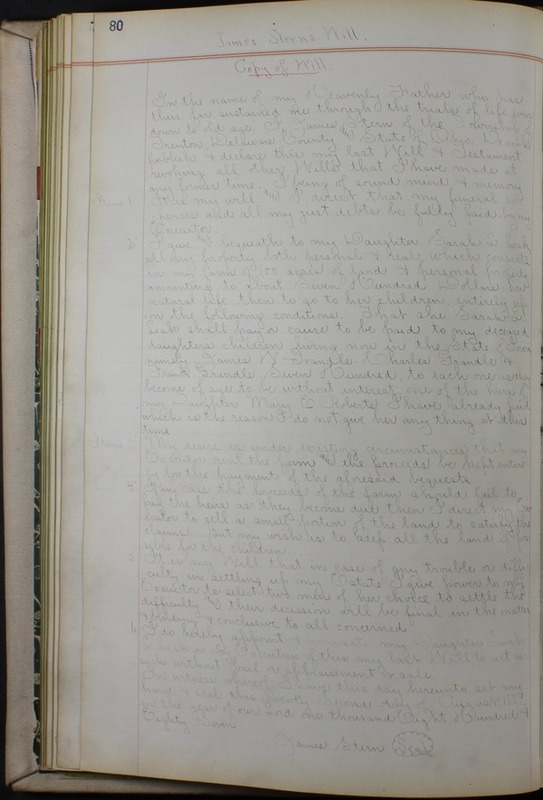 80
James Stern's Will.
Copy of Will.
In the name of my Heavenly Father who has
thus far sustained me through the trials of life from
down to old age. I James Stern of the Township of
Trenton, Delaware County & State of Ohio. Do make
publish & declare this my last Will & Testament
revoking all they Wills that I have made at
any former time. I being of sound mind & memory
Item 1 It is my will & I direct that my funeral ex-
pences and all my just debts be fully paid by my
Executor
2 I give & bequeath to my Daughter Sarah
all my property both personal & real which consists
in my farm of 100 acres of land & personal property
amounting to about Seven Hundred Dollars her
natural life then to go to her children entirely up-
on the following conditions. That she Sarah
shall pay or cause to be paid to my deceased
daughters children living now in the State of Iowa
namely James W Frandle Charles Frandle &
Frank Frandle Seven Hundred to each one as they
become of age to be without interest, one of the heirs of
my daughter Mary E Roberts I have already paid
which is the reason I do not give her any thing at this
time
My desire is under existing circumstances that my
Executor rent the farm & the proceeds be kept entire-
ly for the payment of the aforesaid bequests
4 If in case the proceeds of the farm should fail to
pay the heirs as they become due then I direct my Exe-
cutor to sell a small portion of the land to satisfy the
claims. But my wish is to keep all the land if pos-
sible for the children.
5 It is my Will that in case of any trouble or diffi-
culty in settling up my Estate I give power to my
Executor to select two men of her choice to settle the
difficulty & their decision will be final in the matter
& binding & conclusive to all concerned
6 I do hereby appoint my Daughter Sarah
as Executrix of this my last Will to act
without bail or appraisement or sale.
In witness whereof I have this day hereunto set my
hand & seal this Twenty Second day of August 1887
in the year of our Lord one thousand Eight Hundred &
Eighty Seven
James Stern Seal